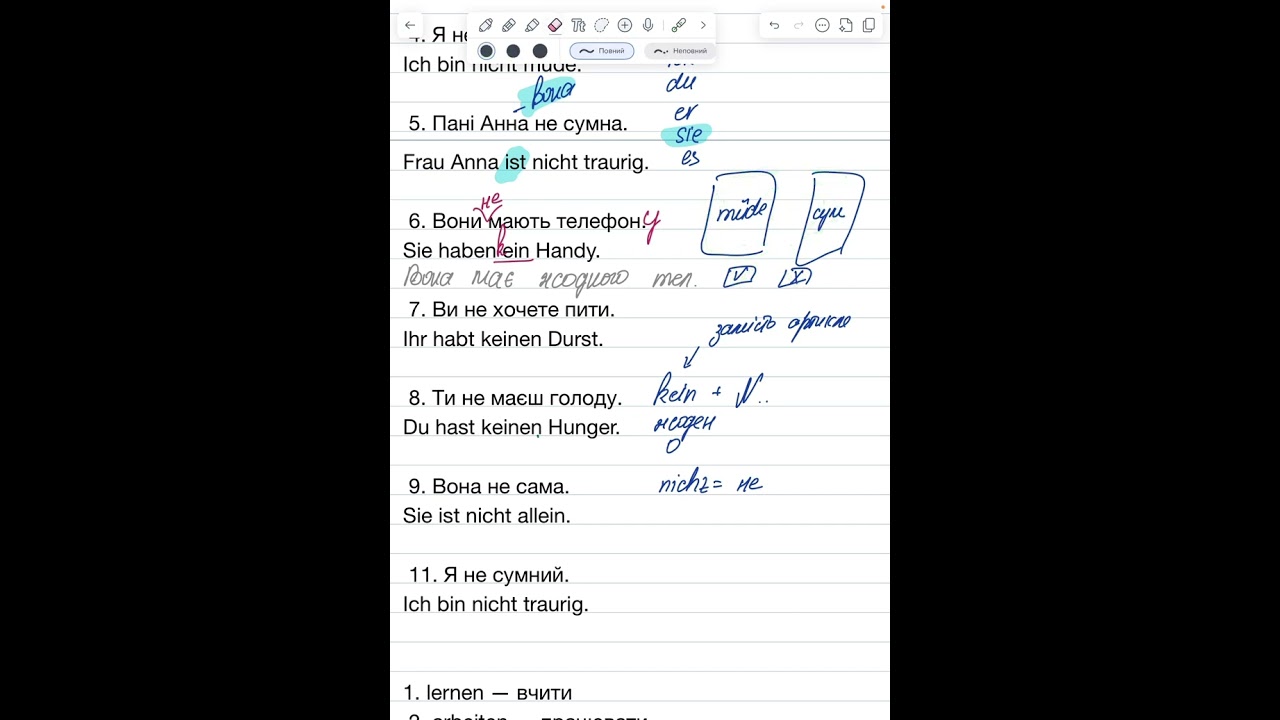 Повний
Неповний
4. Я не
Ich bin nicht müde.
du
– вона
er
5. Пані Анна не сумна.
sie
Frau Anna ist nicht traurig.
es
не
müde
сум
6. Вони мають телефон.у
Sie haben kein Handy.
Вона має жодного тел.
V
X
7. Ви не хочете пити.
замість артикля
Ihr habt keinen Durst.
8. Ти не маєш голоду.
kein + N..
Du hast keinen Hunger.
жоден
О
9. Вона не сама.
nicht = не
Sie ist nicht allein.
11. Я не сумний.
Ich bin nicht traurig.
1. lernen — вчити
2. arbeiten — працювати